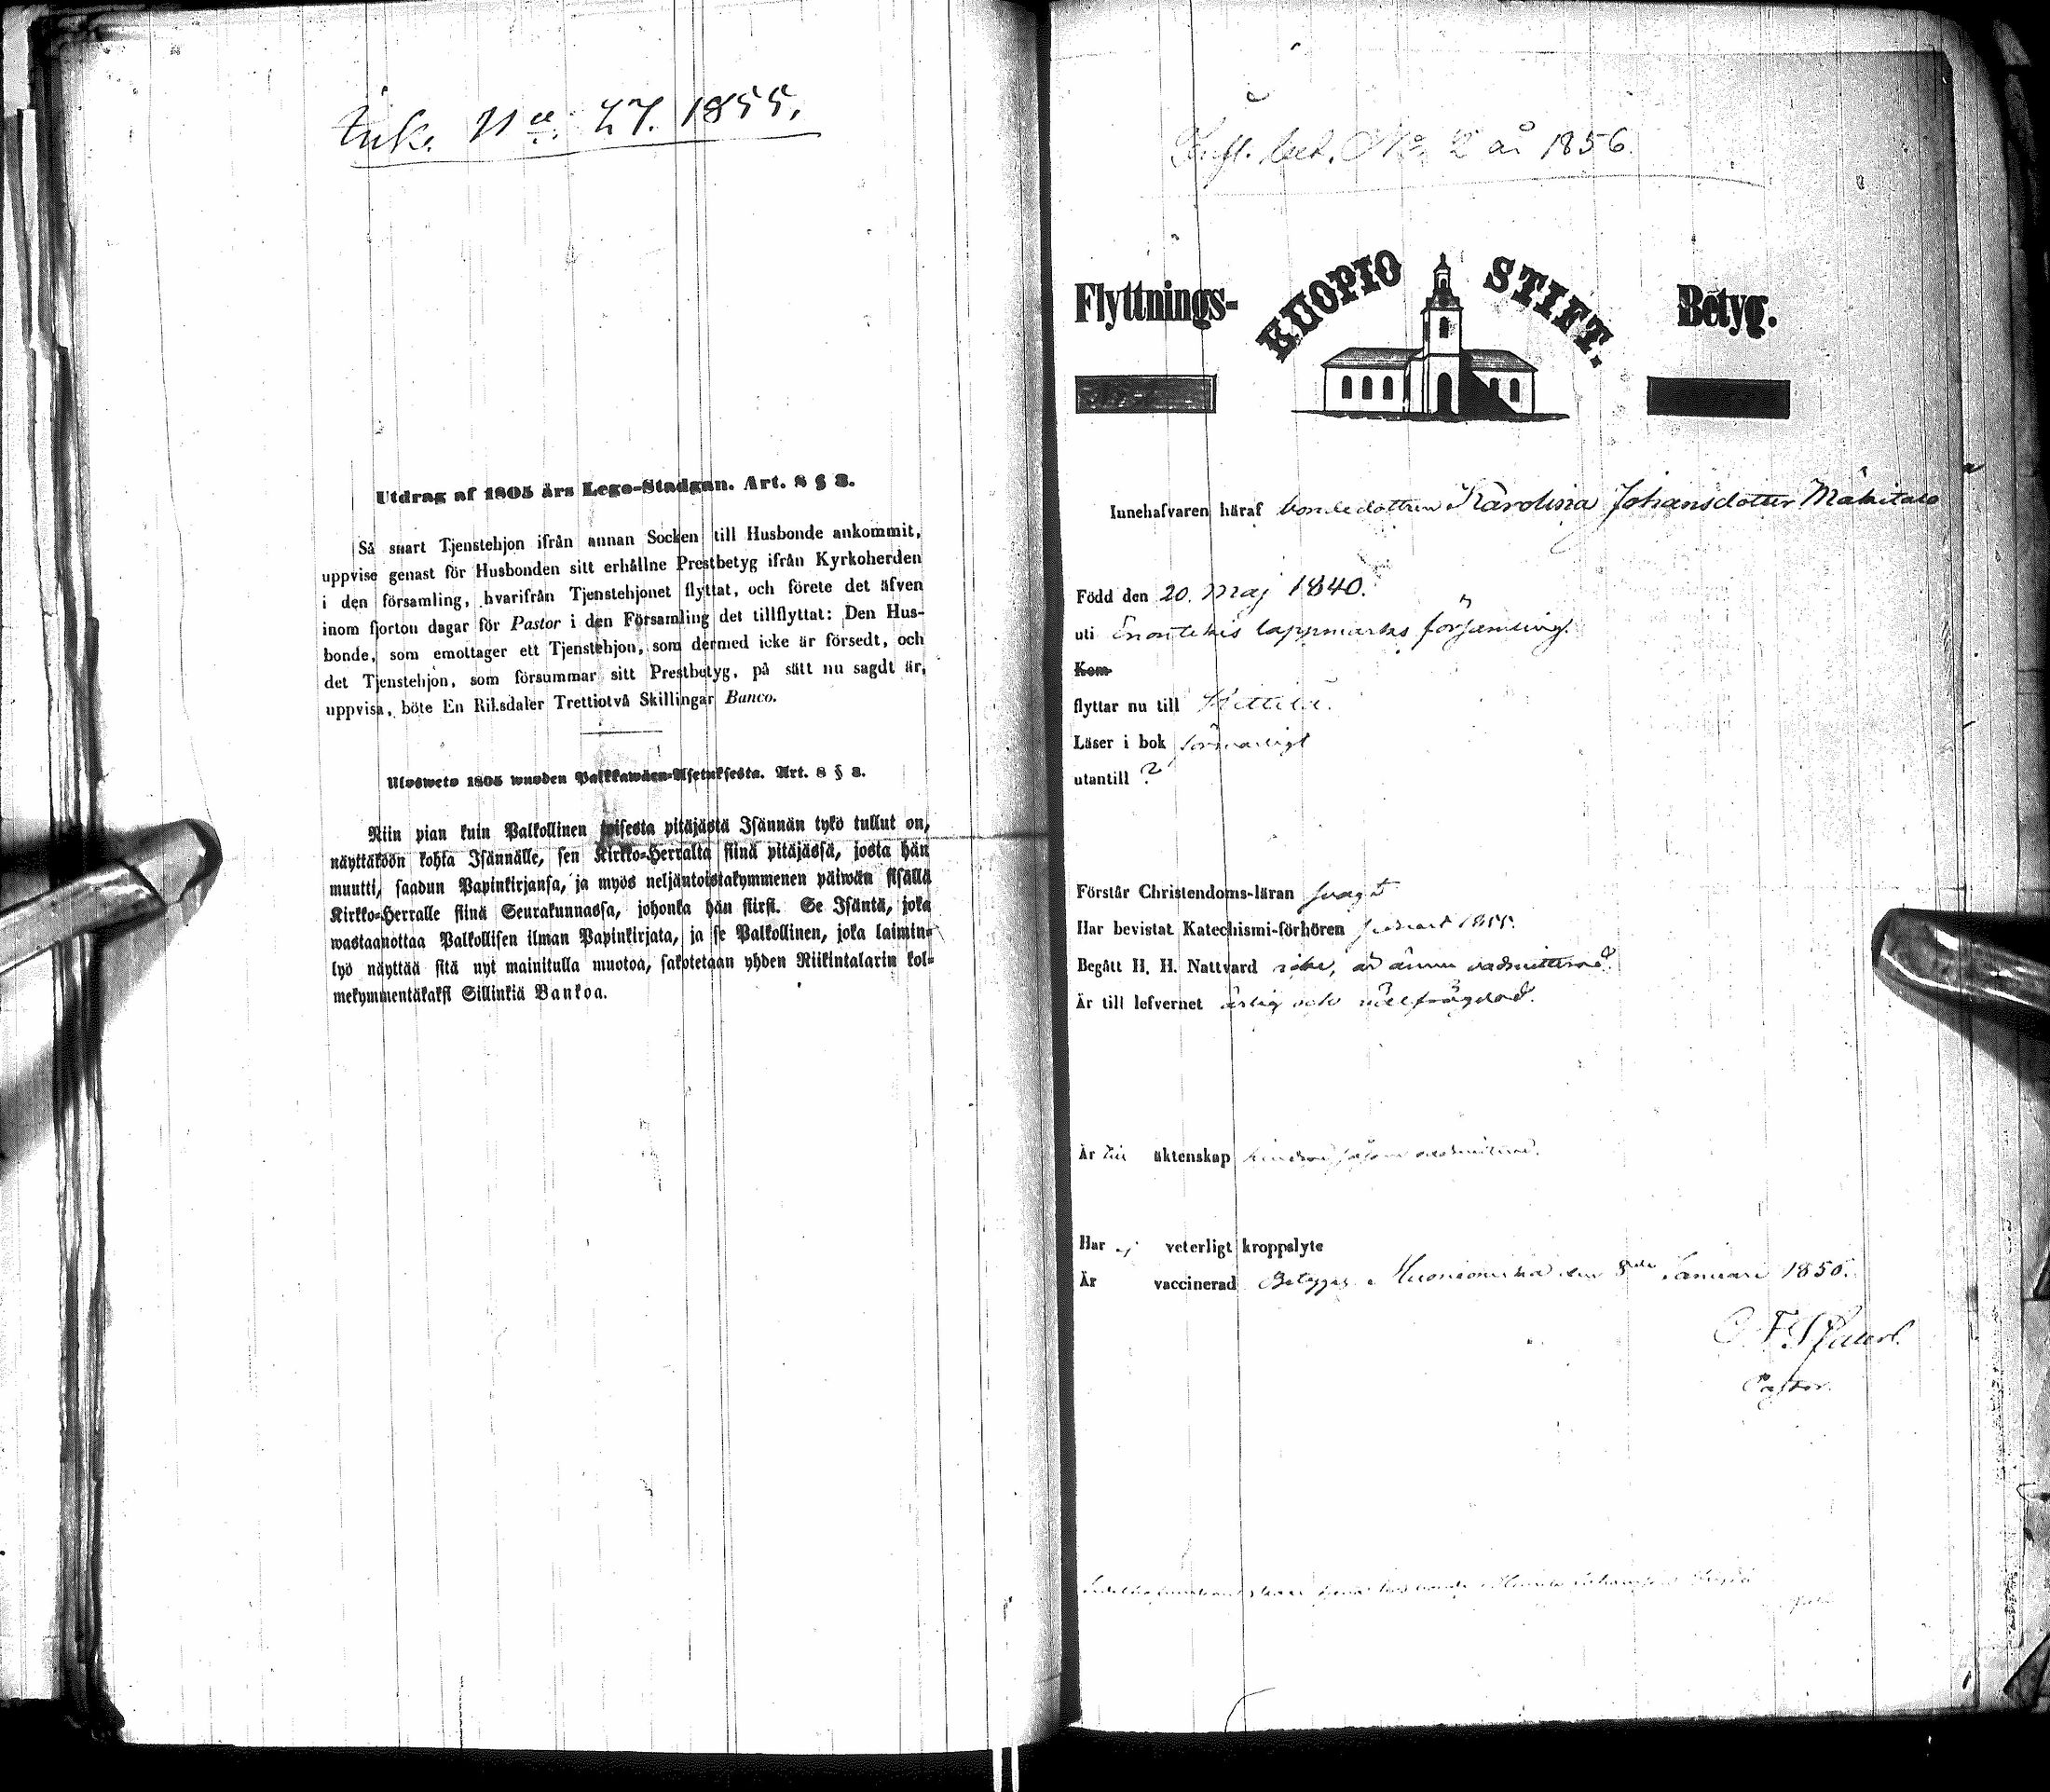 Ink. N:o 27. 1855.
Utdrag af 1805 års Lego-Stadgan. Art. 8 § 3.
Så snart Tjenstehjon ifrån annan Socken till Husbonde ankommit,
uppvise genast för Husbonden sitt erhållne Prestbetyg ifrån Kyrkoherden
i den församling, hvarifrån Tjenstehjonet flyttat, och förete det äfven
inom fjorton dagar för Pastor i den Församling det tillflyttat: Den Hus-
bonde, som emottager ett Tjenstehjon, som dermed icke är försedt, och
det Tjenstehjon, som försummar sitt Prestbetyg, på sätt nu sagdt är,
uppvisa, böte En Riksdaler Trettiotvå Skillingar Banco.
Ulosweto 1805 wuoden Palkkawäen-Asetuksesta. Art. 8 § 3.
Niin pian kuin Palkollinen toisesta pitäjästä Isännän tykö tullut on,
näyttäköön kohta Isännälle, sen Kirkko-Herralta siinä pitäjässä, josta hän
muutti, saadun Papinkirjansa, ja myös neljäntoistakymmenen päiwän sisällä
Kirkko-Herralle siinä Seurakunnassa, johonka hän siirsi. Se Isäntä, joka
wastaanottaa Palkollisen ilman Papinkirjata, ja se Palkollinen, joka laimin-
lyö näyttää sitä nyt mainitulla muotoa, sakotetaan yhden Riikintalarin kol-
mekymmentäkaksi Sillinkiä Bankoa.
Infl. bet. No 2 år 1856.
Flyttnings- KUOPIO STIFT. Betyg.
Innehafvaren häraf bondedottren Karolina Johansdotter Mäkitalo
Född den 20. Maj 1840.
uti Enontekis lappmarks församling.
Kom
flyttar nu till Kittilä.
Läser i bok försvarligt
utantill
Förstår Christendoms-läran svagt
Har bevistat Katechismi-förhören 1855.
Begått H. H. Nattvard icke, är ännu oadmitterad.
Är till lefvernet ärlig och välfrägdad.
Är till äktenskap hindrad såsom oadmitterad.
Har ej veterligt kroppslyte
Är vaccinerad Betygas. Muonioniska den 8de Januari 185
Pastor.